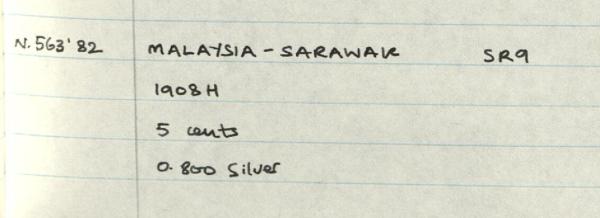 N.563'82 MALAYSIA - SARAWAK SR9
1908H
5 cents
0.800 Silver